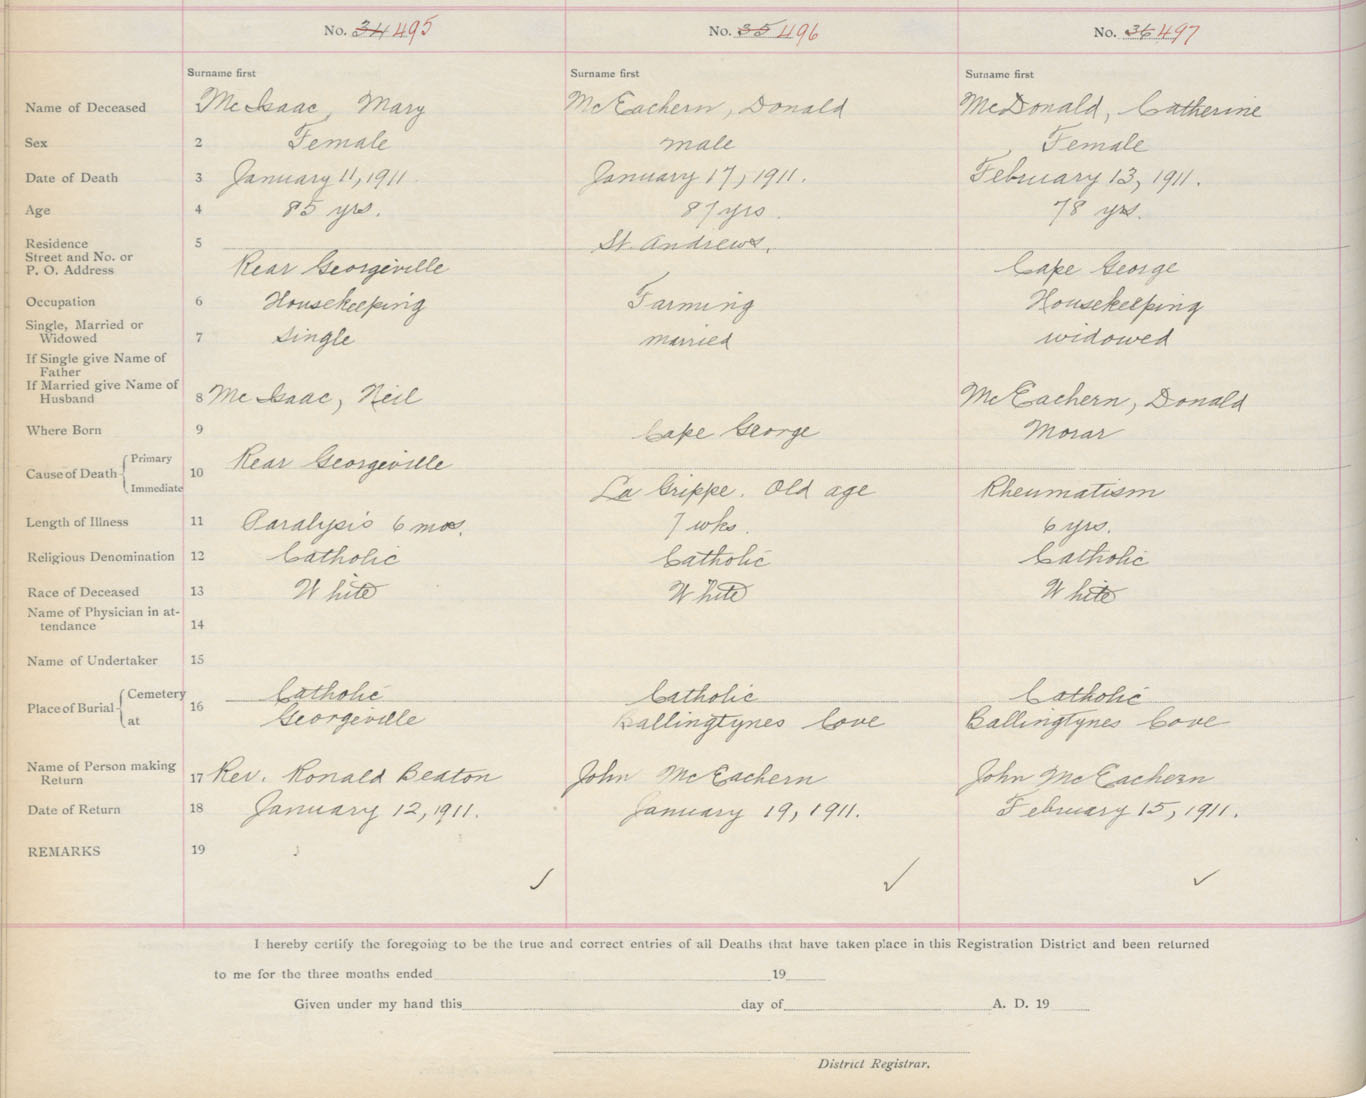 No. 34 495 No. 35 496 No. 36 497
Surname first Surname first Surname first
Name of Deceased 1 McIsaac, Mary McEachern, Donald McDonald, Catherine
Sex 2 Female male Female
Date of Death 3 January 11, 1911. January 17, 1911. February 13, 1911.
Age 4 85 yrs. 87 yrs. 78 yrs.
Residence 5 St. Andrews.
Street and No. or
P. O. Address Rear Georgeville Cape George
Occupation 6 Housekeeping Farming Housekeeping
Single, Married or
Widowed 7 single married widowed
If Single give Name of
Father
If Married give Name of
Husband 8 McIsaac, Neil McEachern, Donald
Where Born 9 Cape George Morar
Cause of Death Primary 10 Rear Georgeville
Immediate La Grippe. Old age Rheumatism
Length of Illness 11 Paralysis 6 mos. 7 wks. 6 yrs.
Religious Denomination 12 Catholic Catholic Catholic
Race of Deceased 13 White White White
Name of Physician in at-
tendance 14
Name of Undertaker 15
Place of Burial Cemetery 16 Catholic Catholic Catholic
at Georgeville Ballingtynes Cove Ballingtynes Cove
Name of Person making
Return 17 Rev. Ronald Beaton John McEachern John McEachern
Date of Return 18 January 12, 1911. January 19, 1911. February 15, 1911.
REMARKS 19
I hereby certify the foregoing to be the true and correct entries of all Deaths that have taken place in this Registration District and been returned
to me for the three months ended 19
Given under my hand this day of A. D. 19
District Registrar.